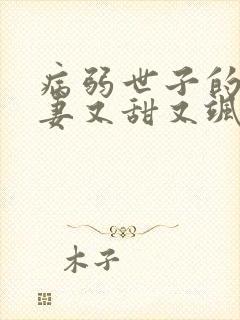 病弱世子的
妻又甜又飒
木子